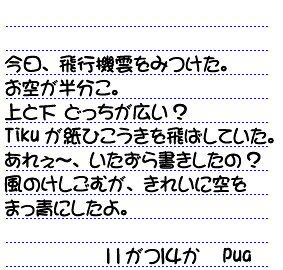 今日、飛行機雲をみつけた。
お空が半分こ。
上と下 どっちが広い？
Tikuが紙ひこうきを飛ばしていた。
あれぇ～、いたずら書きしたの？
風のけしごむが、きれいに空を
まっ青にしたよ。
11がつ14か　Pua